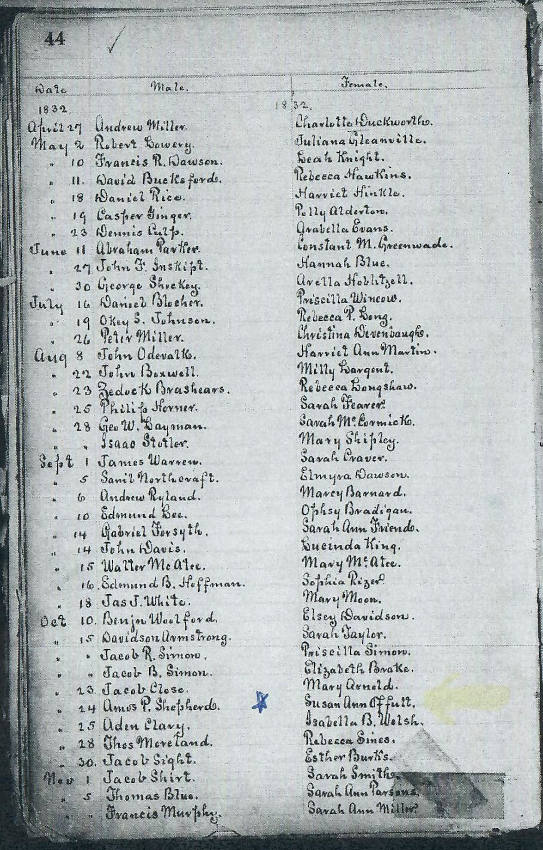 44
Date Male. Female.
1832 1832.
April 27 Andrew Miller. Charlotte Duckworth.
May 2 Robert Lowery. Juliana Gleanville.
" 10 Francis R. Dawson. Leah Knight.
" 11. David Bucksford. Rebecca Hawkins.
" 18 Daniel Rice. Harriet Hinkle.
" 19 Casper Ginger. Polly Alderton.
" 23 Dennis Culp. Arabella Evans.
June 11 Abraham Parker. Constant M. Greenwade.
" 27 John F. Inskipt. Hannah Blue.
" 30 George Shockey. Arella Hoblitzell.
July 16 Daniel Blocher. Priscilla Wincow.
" 19 Okey S. Johnson. Rebecca P. Long.
" 26 Peter Miller. Christina Devenbaugh.
Aug 8 John Oderalk. Harriet Ann Martin.
" 22 John Boxwell. Milly Largent.
" 23 Zedock Brashears. Rebecca Longshaw.
" 25 Philip Horner. Sarah Fearer.
" 28 Geo W. Layman. Sarah McCormick.
" " Isaac Stotler. Mary Shipley.
Sept 1 James Warren. Sarah Craver.
" 5 Saml Northcraft. Elmyra Dawson.
" 6 Andrew Ryland. Marcy Barnard.
" 10 Edmund Lee. Ophsy Bradigan.
" 14 Gabriel Forsyth. Sarah Ann Friend.
" 14 John Davis. Lucinda King.
" 15 Walter McAtee. Mary McAtee.
" 16 Edmund B. Hoffman. Sophia Rizer.
" 18 Jas J. White. Mary Moon.
Oct 10. Benjn Woolford. Elsey Davidson.
" 15 Davidson Armstrong. Sarah Taylor.
" " Jacob R. Simon. Priscilla Simon.
" " Jacob B. Simon. Elizabeth Brake.
" 23 Jacob Close. Mary Arnold.
" 24 Amos P. Shepherd. Susan Ann Offutt.
" 25 Aden Clary. Isabella B. Welsh.
" 28 Thos Moreland. Rebecca Sines.
" 30. Jacob Sight. Esther Burks.
Nov 1 Jacob Shirt. Sarah Smith.
" 5 Thomas Blue. Sarah Ann Parsons.
" " Francis Murphy. Sarah Ann Miller.